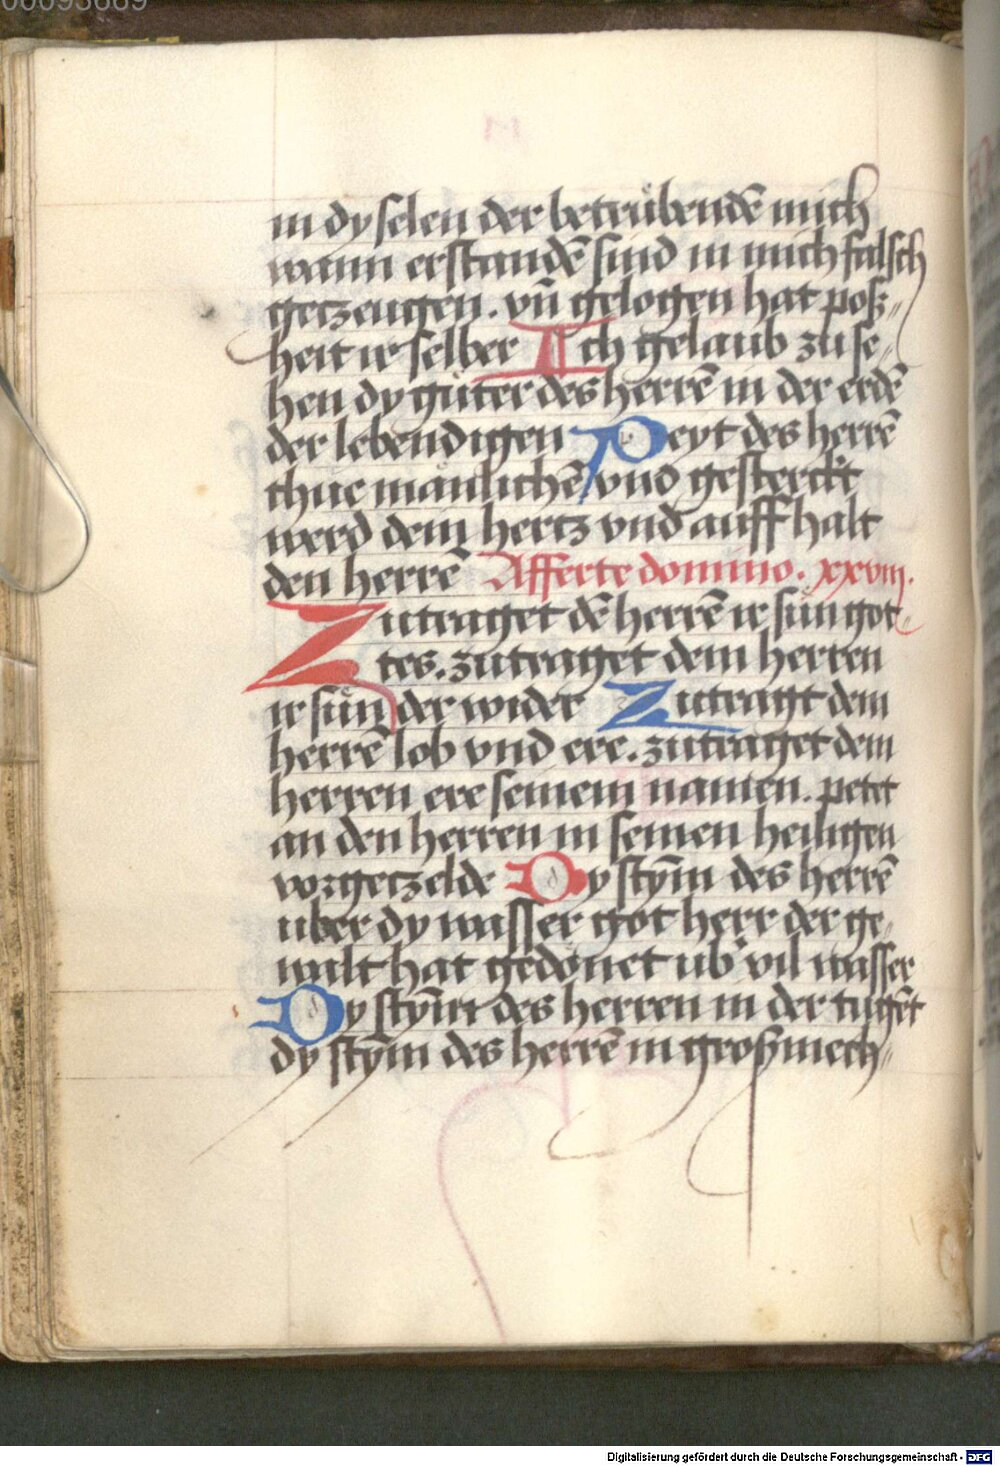 00093689
in dy selen der betrůbendē mich
wann erstandē sind in mich falsch
getzeugen. vn̄ gelogen hat posz-
heit ir selber Ich gelaub zu se-
hen dy gůter des herrē in der erdē
der lebendigen Peyt des herrē
thue mānlichē vnd gesterckt
werd dein hertz vnd auff halt
den herrē Afferte domino. xxviij.
Zutraget dē herrē ir sůn got-
tes. zutraget dem herren
ir sůn der wider Zutragt dem
herrē lob vnd ere. zutraget dem
herren ere seinem namen. petet
an den herren in seinen heiligen
vorgetzelde Dy stȳm des herrē
über dy wasser got herr der ge-
walt hat gedönet üb' vil wasser
Dy stȳm des herren in der tugēt
dy stȳm des herrē in groszmech-
Digitalisierung gefördert durch die Deutsche Forschungsgemeinschaft - DFG